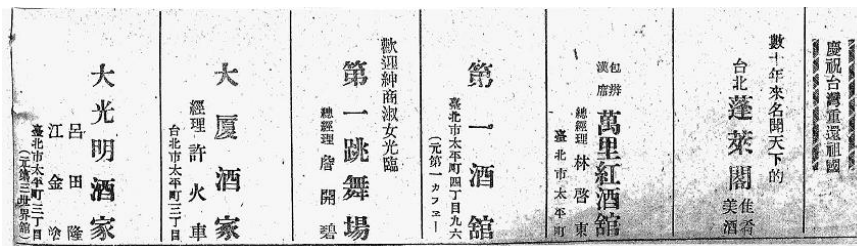 慶祝台灣重還祖國
數十年來名聞天下的
台北 蓬萊閣 佳肴 美酒
包辦 漢席 萬里紅酒舘
總經理 林啓東
臺北市太平町
第一酒舘
臺北市太平町四丁目九六
(元第一カフヱー)
歡迎紳商淑女光臨
第一跳舞場
總經理 詹開碧
大厦酒家
經理 許火車
台北市太平町三丁目
大光明酒家
呂田隆
江金塗
臺北市太平町三丁目
(元第三世界舘)